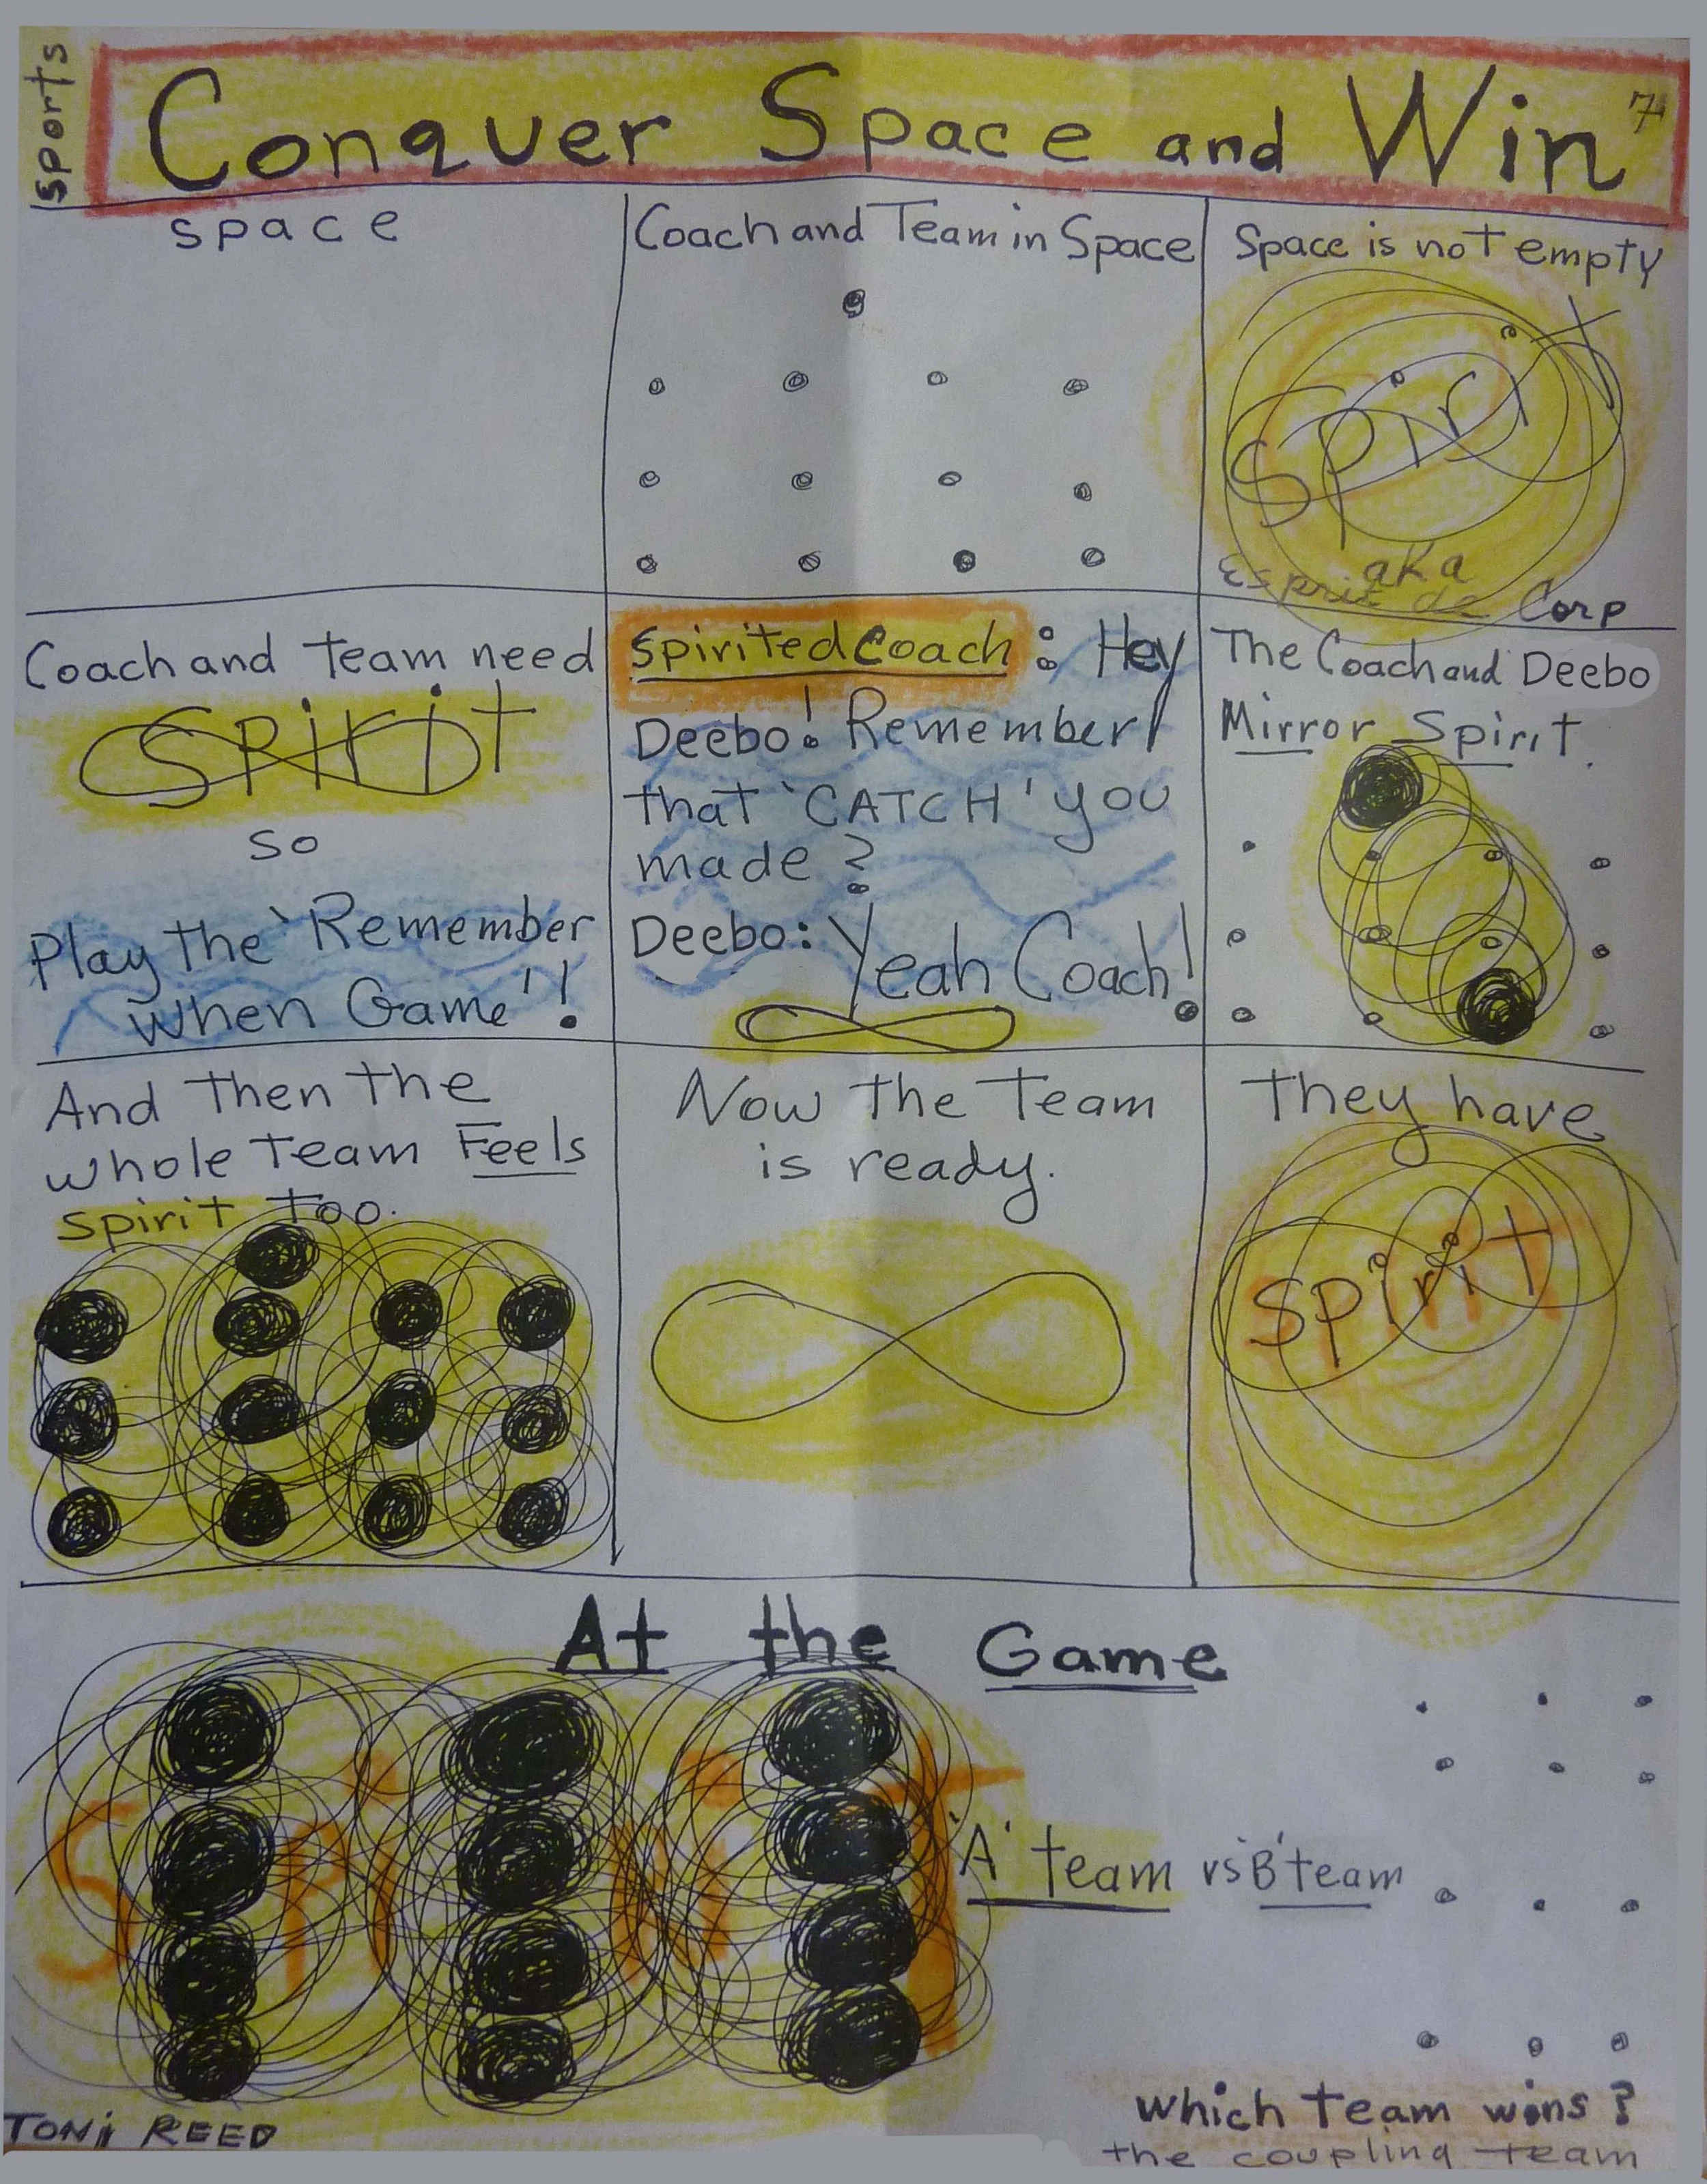 sports
Conquer Space and Win
7
space
Coach and Team in Space
Space is not empty
Spirit
aka
Esprit de Corp
Coach and Team need
Spirit
so
Play the `Remember
when Game'!
Spirited Coach: Hey
Deebo! Remember
that `CATCH' you
made?
Deebo: Yeah Coach!
The Coach and Deebo
Mirror Spirit.
And then the
whole Team Feels
spirit too.
Now the Team
is ready.
They have
Spirit
At the Game
Spirit
`A' team vs `B' team
which team wins?
the coupling team
TONi REED